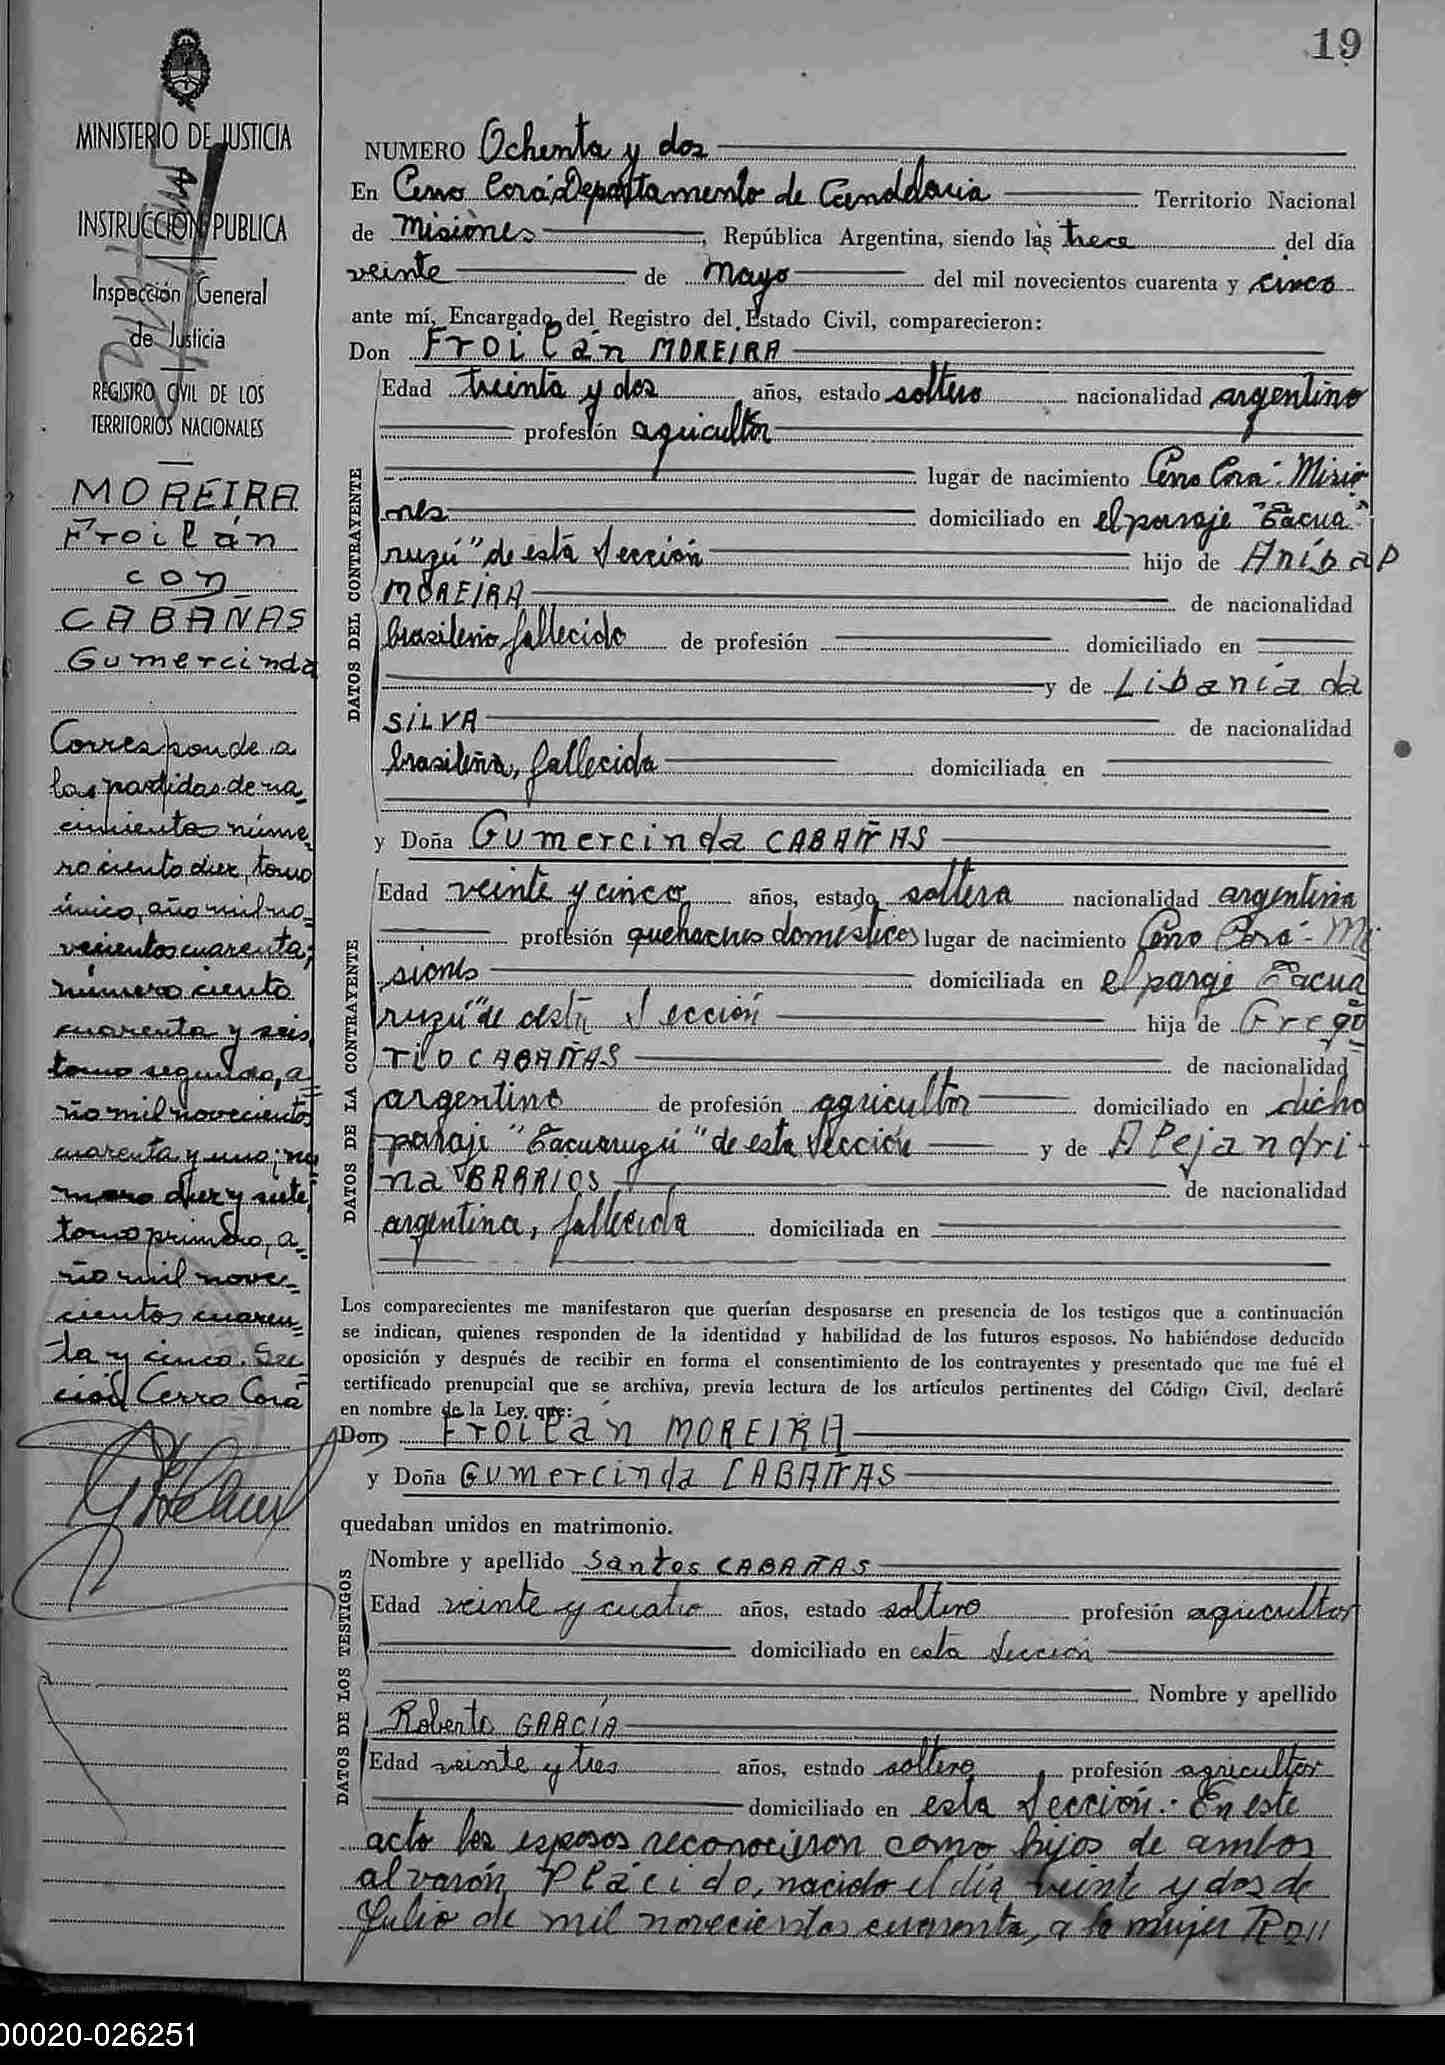 19
MINISTERIO DE JUSTICIA
INSTRUCCION PUBLICA
Inspección General
de Justicia
REGISTRO CIVIL DE LOS
TERRITORIOS NACIONALES
MOREIRA
Froilán
con
CABAÑAS
Gumercinda
Corresponde a
las partidas de na=
cimientos núme=
ro ciento diez, tomo
único, año mil no=
vecientos cuarenta;
número ciento
cuarenta y seis
tomo segundo, a=
ño mil novecientos
cuarenta y uno; nú
mero diez y siete
tomo primero, a=
ño mil nove=
cientos cuaren=
ta y cinco. Sec
ción Cerro Corá
NUMERO Ochenta y dos
En Cerro Corá Departamento de Candelaria Territorio Nacional
de Misiones, República Argentina, siendo las trece del día
veinte de mayo del mil novecientos cuarenta y cinco
ante mí, Encargado del Registro del Estado Civil, comparecieron:
Don Froilán MOREIRA
DATOS DEL CONTRAYENTE
Edad treinta y dos años, estado soltero nacionalidad argentino
profesión agricultor
lugar de nacimiento Cerro Corá - Misio
nes domiciliado en el paraje "Tacua=
ruzú" de esta Sección hijo de Aníbal
MOREIRA de nacionalidad
brasileño, fallecido de profesión domiciliado en
y de Libania da
SILVA de nacionalidad
brasileña, fallecida domiciliada en
y Doña Gumercinda CABAÑAS
DATOS DE LA CONTRAYENTE
Edad veinte y cinco años, estado soltera nacionalidad argentina
profesión quehaceres domésticos lugar de nacimiento Cerro Corá - Mi
siones domiciliada en el paraje Tacua
ruzú" de esta Sección hija de Grego
rio CABAÑAS de nacionalidad
argentino de profesión agricultor domiciliado en dicho
paraje "Tacuaruzú" de esta Sección y de Alejandri-
na BARRIOS de nacionalidad
argentina, fallecida domiciliada en
Los comparecientes me manifestaron que querían desposarse en presencia de los testigos que a continuación
se indican, quienes responden de la identidad y habilidad de los futuros esposos. No habiéndose deducido
oposición y después de recibir en forma el consentimiento de los contrayentes y presentado que me fué el
certificado prenupcial que se archiva, previa lectura de los artículos pertinentes del Código Civil, declaré
en nombre de la Ley, que:
Don Froilán MOREIRA
y Doña Gumercinda CABAÑAS
quedaban unidos en matrimonio.
DATOS DE LOS TESTIGOS
Nombre y apellido Santos CABAÑAS
Edad veinte y cuatro años, estado soltero profesión agricultor
domiciliado en esta Sección
Nombre y apellido
Roberto GARCÍA
Edad veinte y tres años, estado soltero profesión agricultor
domiciliado en esta Sección.- En este
acto los esposos reconocieron como hijos de ambos
al varón Plácido, nacido el día veinte y dos de
Julio de mil novecientos cuarenta, a la mujer
00020-026251